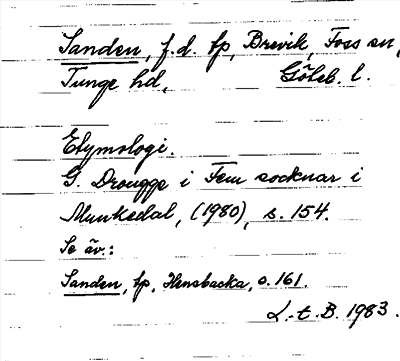 Sanden, f.d. tp, Brevik, Foss sn,
Tunge hd, Göteb. l.
Etymologi.
G. Drougge i Fem socknar i
Munkedal, (1980), s. 154.
Se äv.:
Sanden, tp, Hensbacka, s. 161.
L.-t. B. 1983.